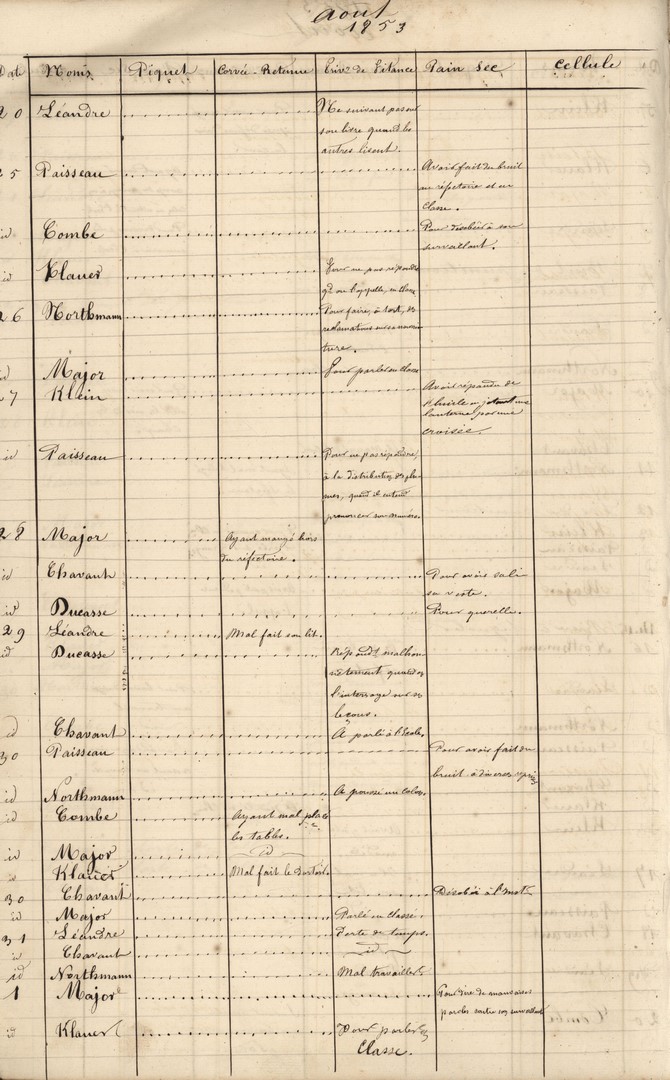 Aout
1853
Date Noms Piquet Corvée-Retenue Priv.on de Séance Pain Sec Cellule
20 Léandre Ne suivant pas sur
son livre quand les
autres lisent.
25 Paisseau Avoir fait du bruit
au réfectoire et en
classe.
id Combe Pour désobéir à son
surveillant.
id Klauer Pour ne pas répondre
qd on l'appelle, en classe
26 Northmann Pour faire, à tort, des
réclamations sur sa nourri-
ture.
id Major Pour parler en classe
27 Klein Avoir répandu de
l'huile en jetant une
lanterne par une
croisée.
id Paisseau Pour ne pas répondre,
à la distribution des plu-
mes, quand il entend
prononcer son numéro.
28 Major Ayant mangé hors
du réfectoire.
id Chavant Pour avoir sali
sa veste.
id Ducasse Pour querelle.
29 Léandre Mal fait son lit.
id Ducasse Répondt malhon-
nêtement quand on
l'interroge sur ses
leçons.
id Chavant A parlé à l'École.
30 Paisseau Pour avoir fait du
bruit à diverses reprises
id Northmann A poussé un colon.
id Combe Ayant mal placé
les tables.
id Major id
id Klauer Mal fait le
30 Chavant Désobéi à l'Inst.
id Major Parlé en Classe.
31 Léandre Perte de temps.
id Chavant id
id Northmann Mal travailler
1 Major Pour dire de mauvaises
paroles contre son surveillant
id Klauer Pour parler en
Classe.